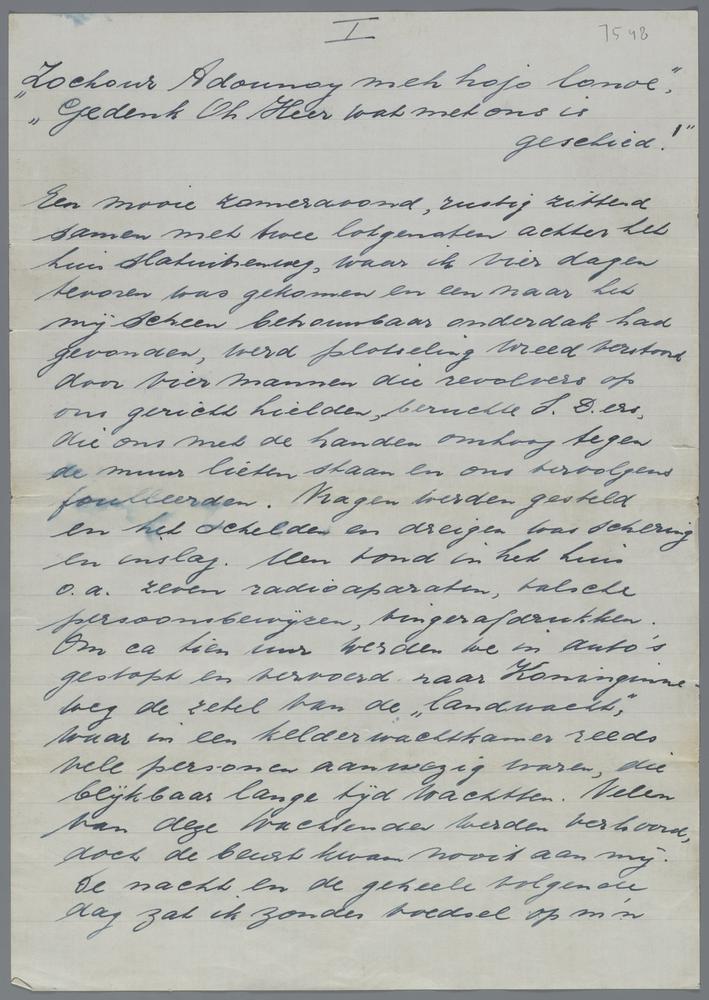 I
7548
„Zochour Adounoy meh hojo lonoe",
„Gedenk Oh Heer wat met ons is
geschied!"
Een mooie zomeravond, rustig zittend
samen met twee lotgenoten achter het
huis Slatuinenweg, waar ik vier dagen
tevoren was gekomen en een naar het
mij scheen betrouwbaar onderdak had
gevonden, werd plotseling wreed verstoord
door vier mannen die revolvers op
ons gericht hielden, beruchte S.D.ers,
die ons met de handen omhoog tegen
de muur lieten staan en ons vervolgens
fouilleerden. Vragen werden gesteld
en het schelden en dreigen was schering
en inslag. Men vond in het huis
o.a. zeven radioaparaten, valsche
persoonsbewijzen, vingerafdrukken.
Om ca tien uur werden we in auto's
gestopt en vervoerd naar Koninginne-
weg de zetel van de „landwacht",
waar in een kelderwachtkamer reeds
vele personen aanwezig waren, die
blijkbaar lange tijd wachtten. Velen
van deze wachtenden werden verhoord,
doch de beurt kwam nooit aan mij.
De nacht en de geheele volgende
dag zat ik zonder voedsel op m'n